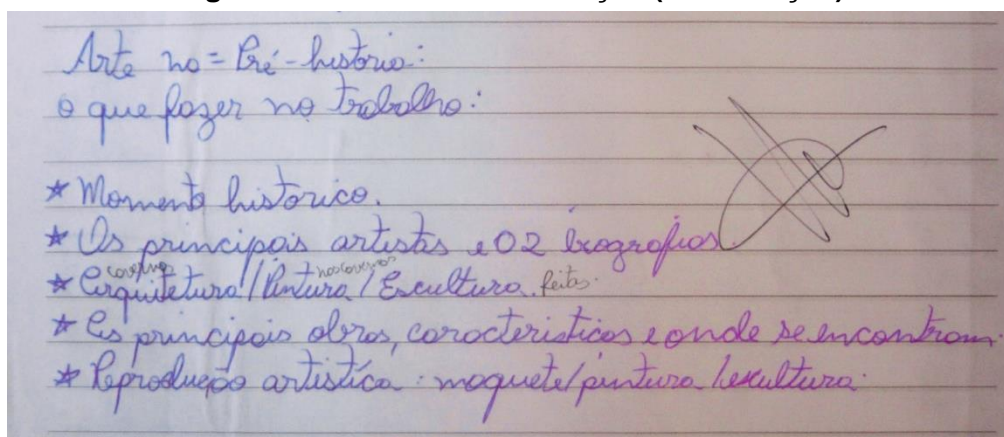 Arte na = Pré-história:
o que fazer no trabalho:
* Momento historico.
* Os principais artistas e 02 biografias.
cavernas nas cavernas
* Arquitetura / Pintura / Escultura. feitas.
* As principais obras, caracteristicas e onde se encontram.
* Reprodução artistica: maquete/pintura/escultura.